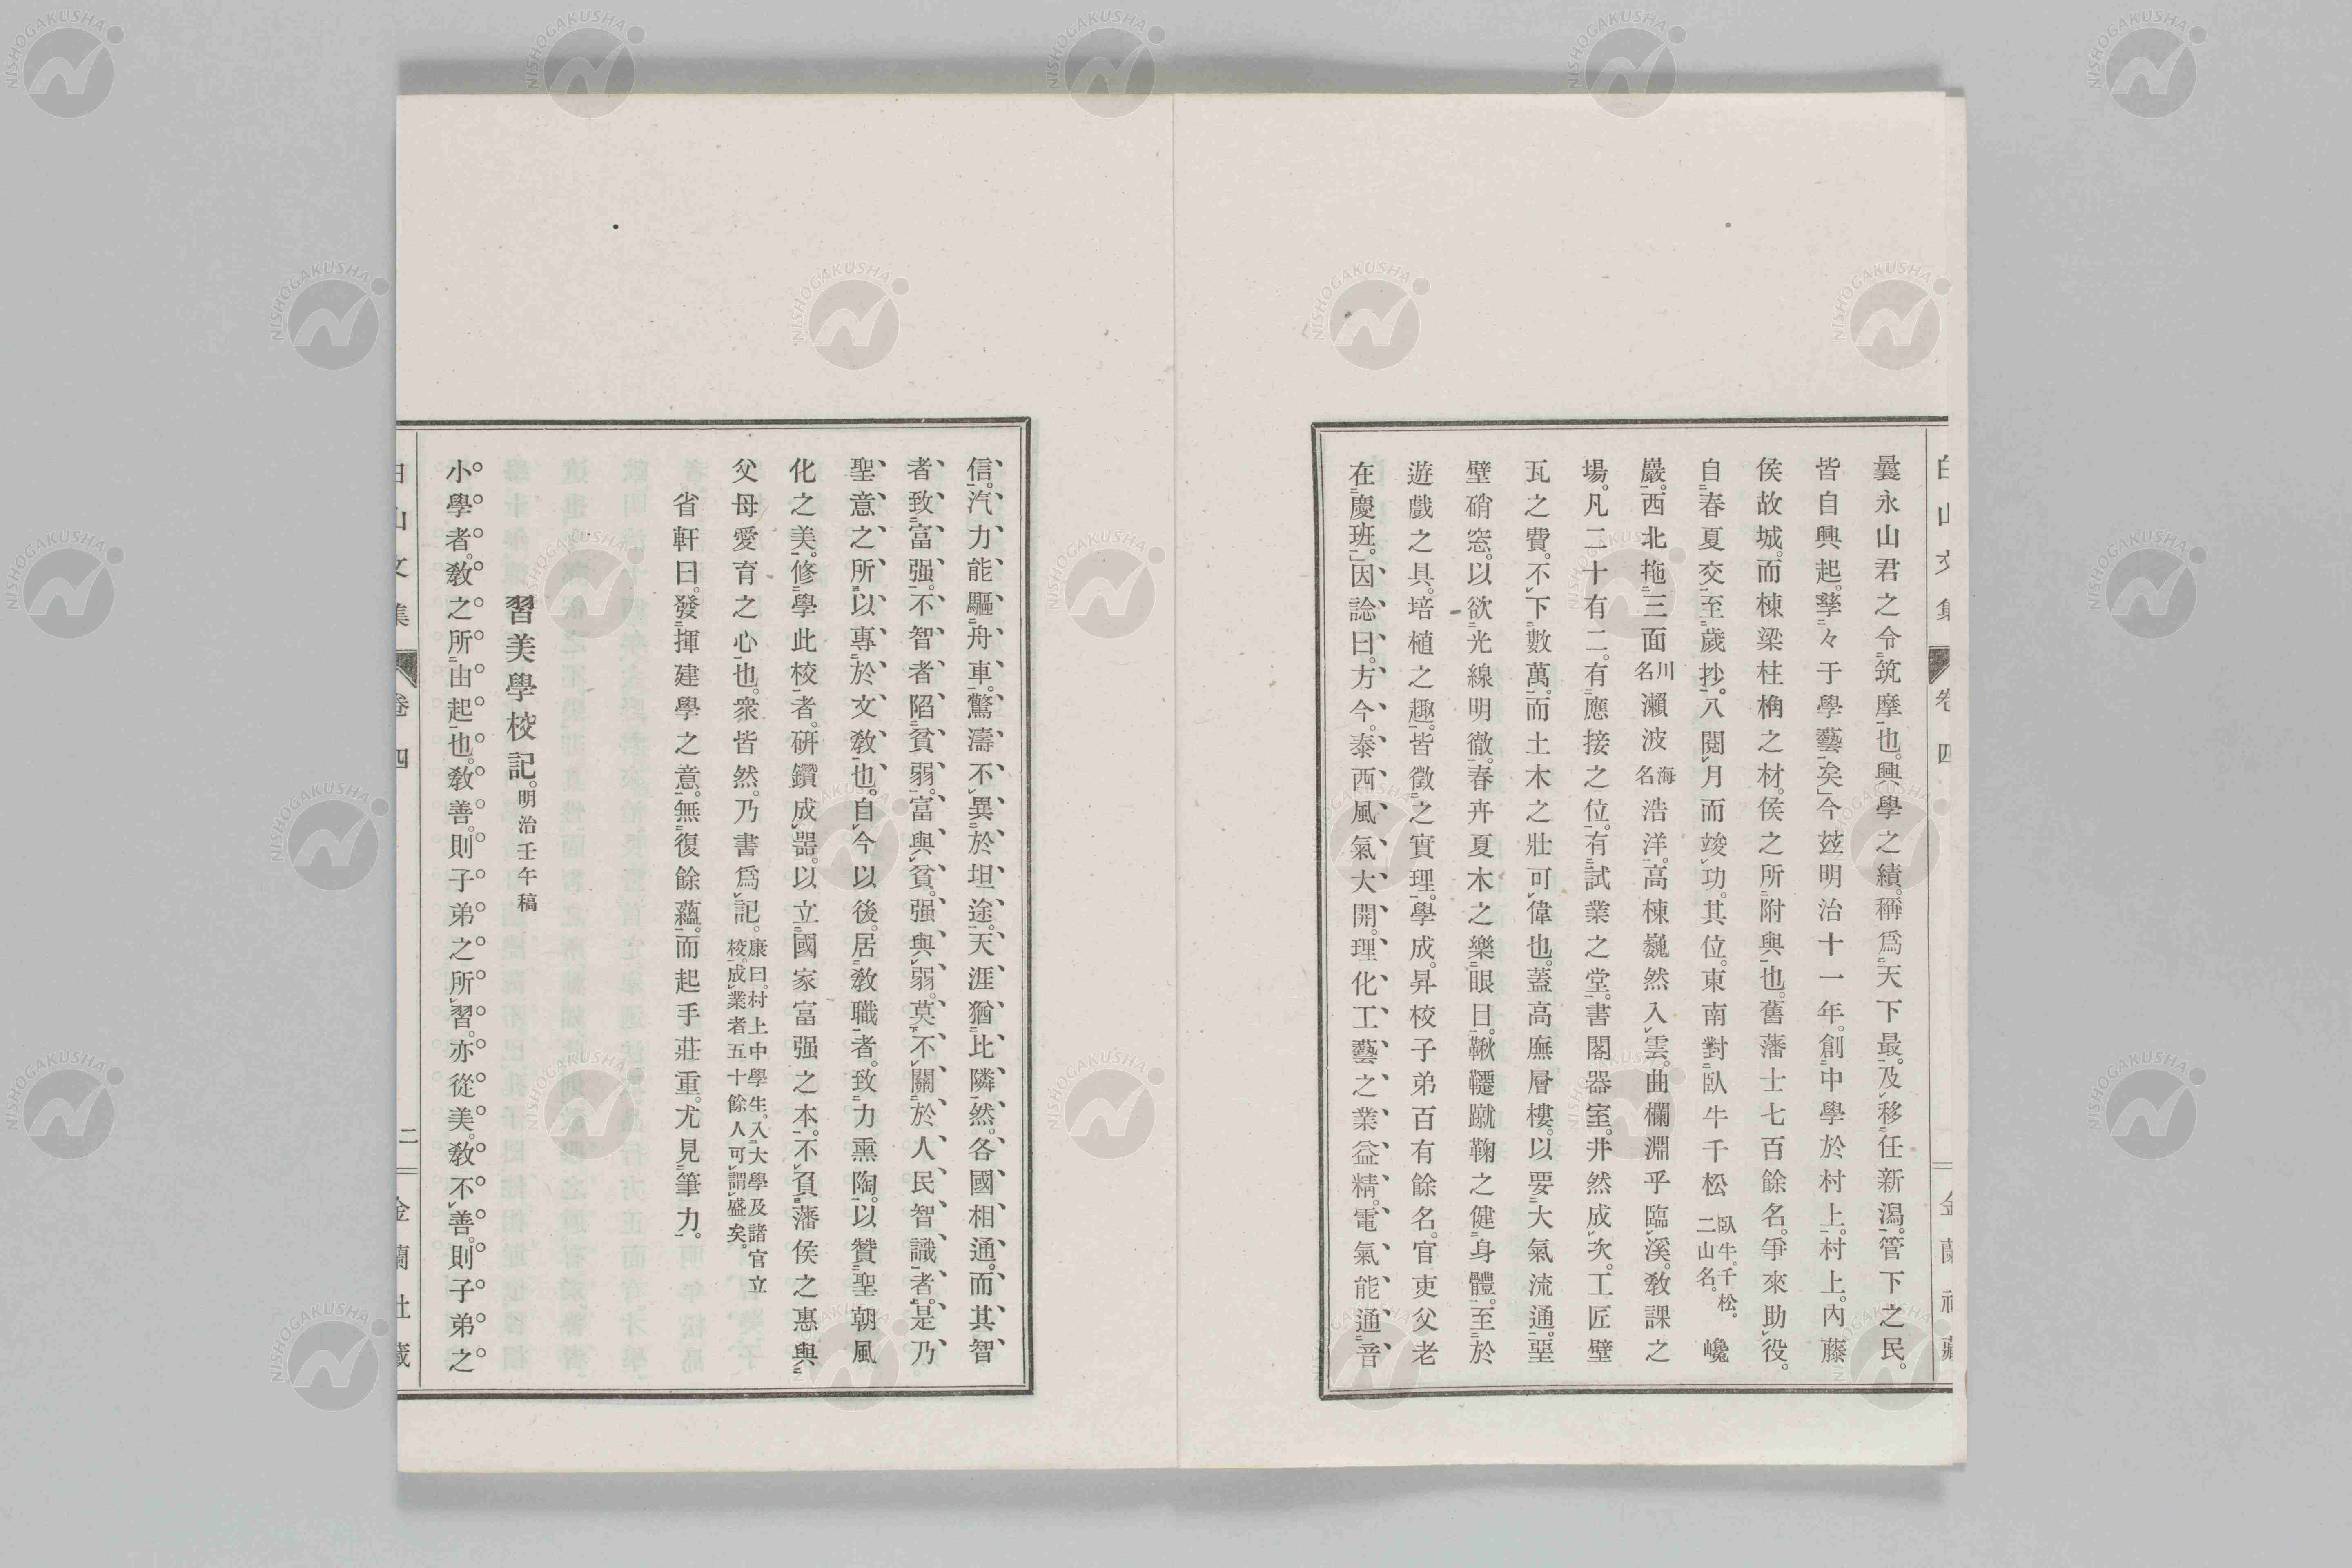 曩永山君之令筑摩也。興學之績。稱爲天下最。及移任新潟。管下之民。
皆自興起。孳々于學藝矣。今玆明治十一年。創中學於村上。村上。內藤
侯故城。而棟梁柱桷之材。侯之所附與也。舊藩士七百餘名。爭來助役。
自春夏交至歲抄。八閱月而竣功。其位。東南對臥牛千松臥牛。千松。二山名。巉
巖。西北拖三面川名瀨波海名浩洋。高棟巍然入雲。曲欄淵乎臨溪。敎課之
場。凡二十有二。有應接之位。有試業之堂。書閣器室。井然成次。工匠壁
瓦之費。不下數萬。而土木之壯可偉也。蓋高廡層樓。以要大氣流通。堊
壁硝窓。以欲光線明徹。春卉夏木之樂眼目。鞦韆蹴鞠之健身體。至於
遊戲之具。培植之趣。皆徵之實理。學成。昇校子弟百有餘名。官吏父老
在慶班。因諗曰。方今。泰西風氣大開。理化工藝之業益精。電氣能通音
信。汽力能驅舟車。驚濤不異於坦途。天涯猶比隣然。各國相通。而其智
者致富强。不智者陷貧弱。富與貧。强與弱。莫不關於人民智識者。是乃
聖意之所以專於文敎也。自今以後。居敎職者。致力熏陶。以贊聖朝風
化之美。修學此校者。硏鑽成器。以立國家富强之本。不負藩侯之惠與
父母愛育之心也。衆皆然。乃書爲記。康曰。村上中學生。入大學及諸官立校。成業者五十餘人可謂盛矣。
省軒曰。發揮建學之意。無復餘蘊。而起手莊重。尤見筆力。
習美學校記。明治壬午稿
小學者。敎之所由起也。敎善。則子弟之所習。亦從美。敎不善。則子弟之
白山文集
卷四
二
金蘭社藏